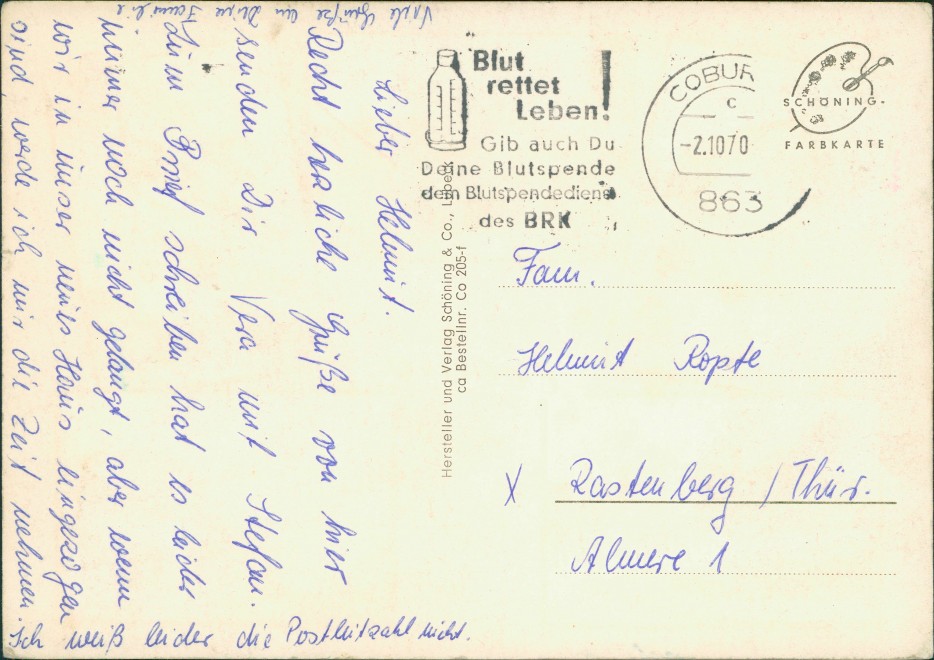 Lieber Helmut.
Recht herzliche Grüße von hier
senden Dir Vera mit Stefan.
Zum Brief schreiben hat es leider
immer noch nicht gelangt, aber wenn
wir in unser neues Haus eingezogen
sind, werde ich mir die Zeit nehmen.
Viele Grüße an Deine Familie
Ich weiß leider die Postleitzahl nicht.
Hersteller und Verlag Schöning & Co., Lübeck
ca Bestellnr. Co 205-f
Blut
rettet
Leben!
Gib auch Du
Deine Blutspende
dem Blutspendedienst
des BRK
COBUR
c
-2.1070
863
SCHÖNING
FARBKARTE
Fam.
Helmut Ropte
X Rastenberg / Thür.
1